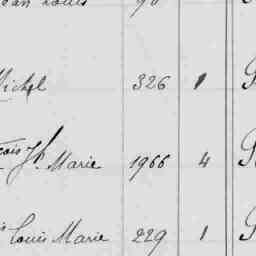 Louis 90
Michel 326 1
Jh Marie 1966 4
Louis Marie 229 1